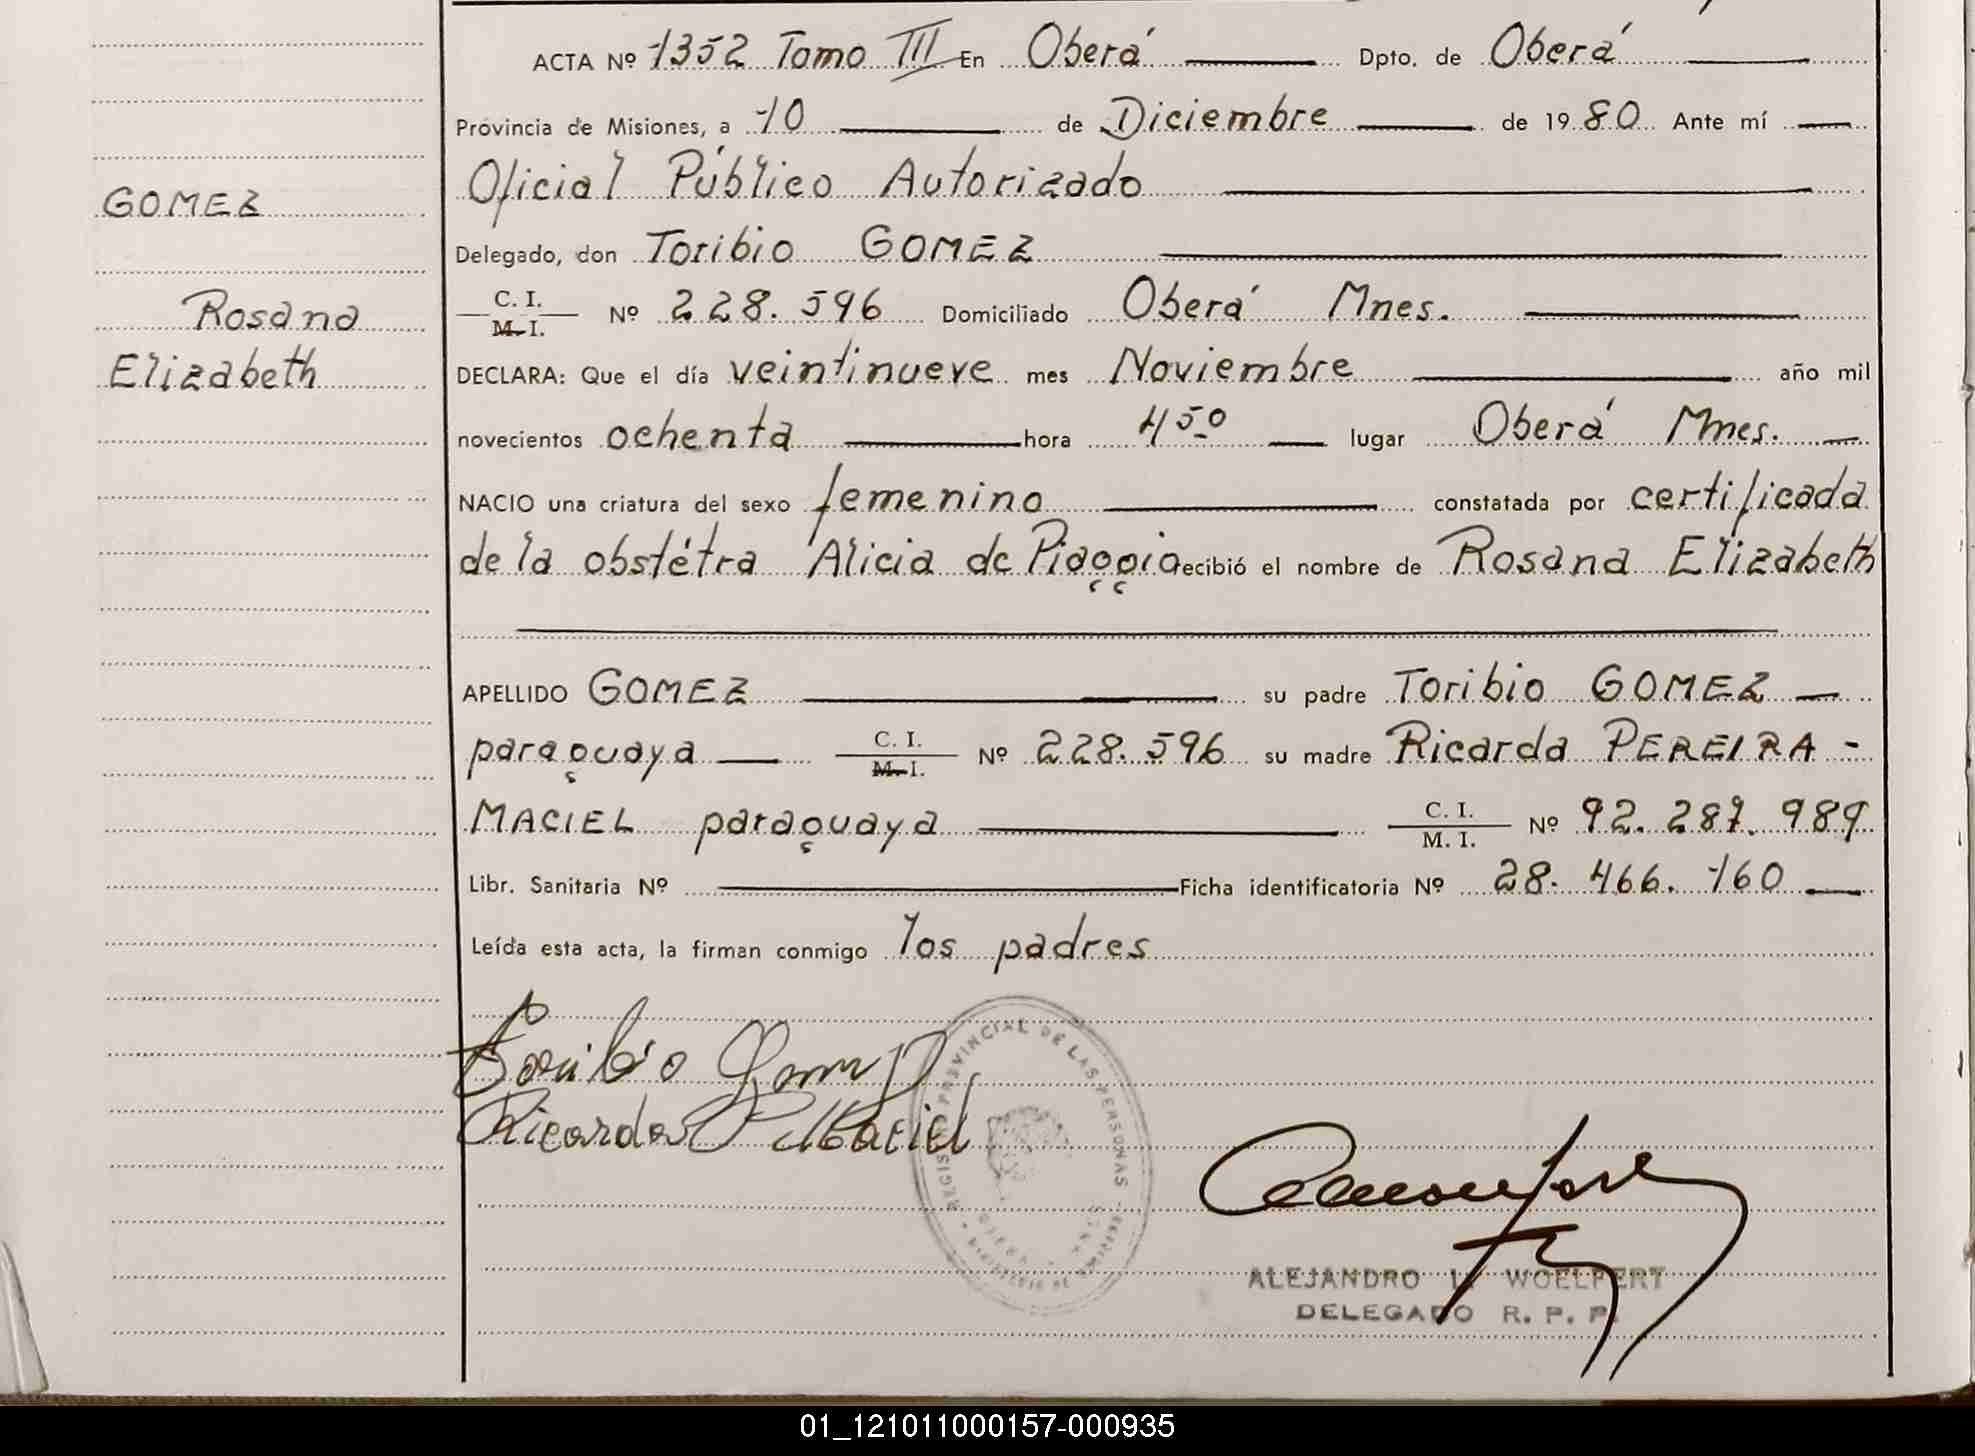 ACTA Nº 1352 Tomo III En Oberá Dpto. de Oberá
Provincia de Misiones, a 10 de Diciembre de 1980 Ante mí
Oficial Público Autorizado
GOMEZ
Delegado, don Toribio GOMEZ
C. I.
M. I. Nº 228.596 Domiciliado Oberá Mnes.
Rosana
Elizabeth
DECLARA: Que el día veintinueve mes Noviembre año mil
novecientos ochenta hora 4 50 lugar Oberá Mnes.
NACIO una criatura del sexo femenino constatada por certificada
de la obstétra Alicia de Piaggio ecibió el nombre de Rosana Elizabeth
APELLIDO GOMEZ su padre Toribio GOMEZ
paraguaya C. I. M. I. Nº 228.596 su madre Ricarda PEREIRA -
MACIEL paraguaya C. I. M. I. Nº 92.287.989
Libr. Sanitaria Nº Ficha identificatoria Nº 28.466.160
Leída esta acta, la firman conmigo los padres
Toribio Gomez
Ricarda P Maciel
PROVINCIAL DE LAS PERSONAS
ALEJANDRO WOELFERT
DELEGADO R. P. P.
01_121011000157-000935